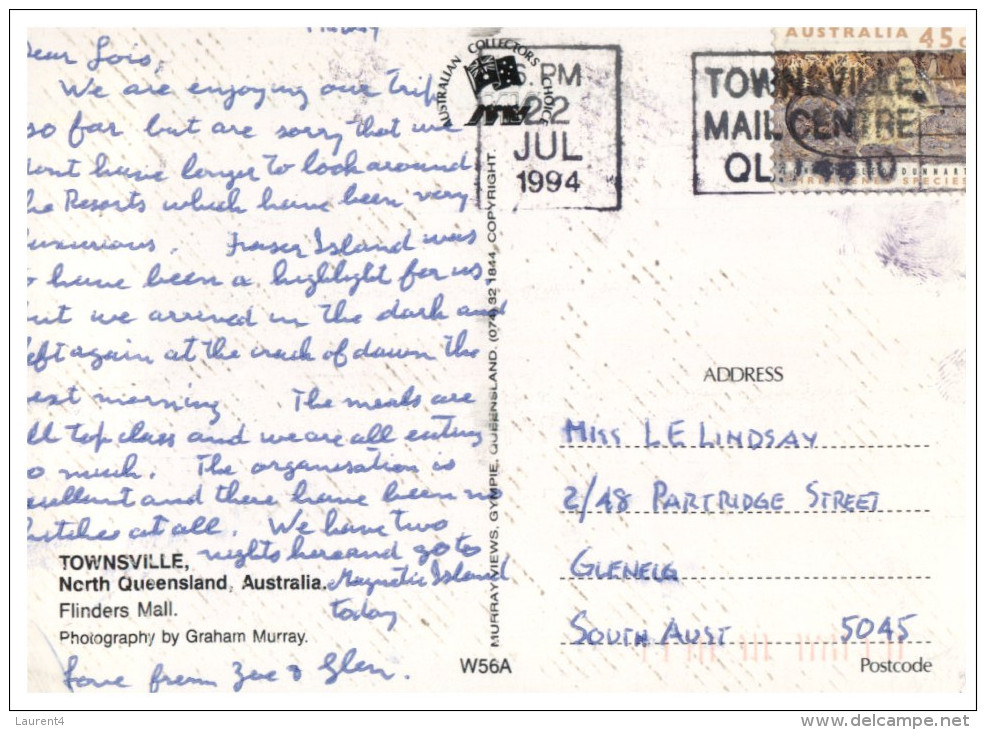 Friday
Dear Lois,
We are enjoying our trip
so far but are sorry that we
dont have longer to look around
the Resorts which have been very
luxurious. Fraser Island was
to have been a highlight for us
but we arrived in the dark and
left again at the crack of dawn the
next morning. The meals are
all top class and we are all eating
so much. The organisation is
excellent and there have been no
hitches at all. We have two
nights here and go to
Magnetic Island
today
Love from Zoe & Glen.
TOWNSVILLE,
North Queensland, Australia.
Flinders Mall.
Photography by Graham Murray.
W56A
MURRAY VIEWS, GYMPIE, QUEENSLAND. (074) 82 1844. COPYRIGHT.
AUSTRALIAN COLLECTORS CHOICE
MV
6. PM
22
JUL
1994
TOWNSVILLE
MAIL CENTRE
QLD 4810
AUSTRALIA 45c
DUNNART
SPECIES
ADDRESS
MISS L E LINDSAY
2/48 PARTRIDGE STREET
GLENELG
SOUTH AUST 5045
Postcode
Laurent4
www.delcampe.net